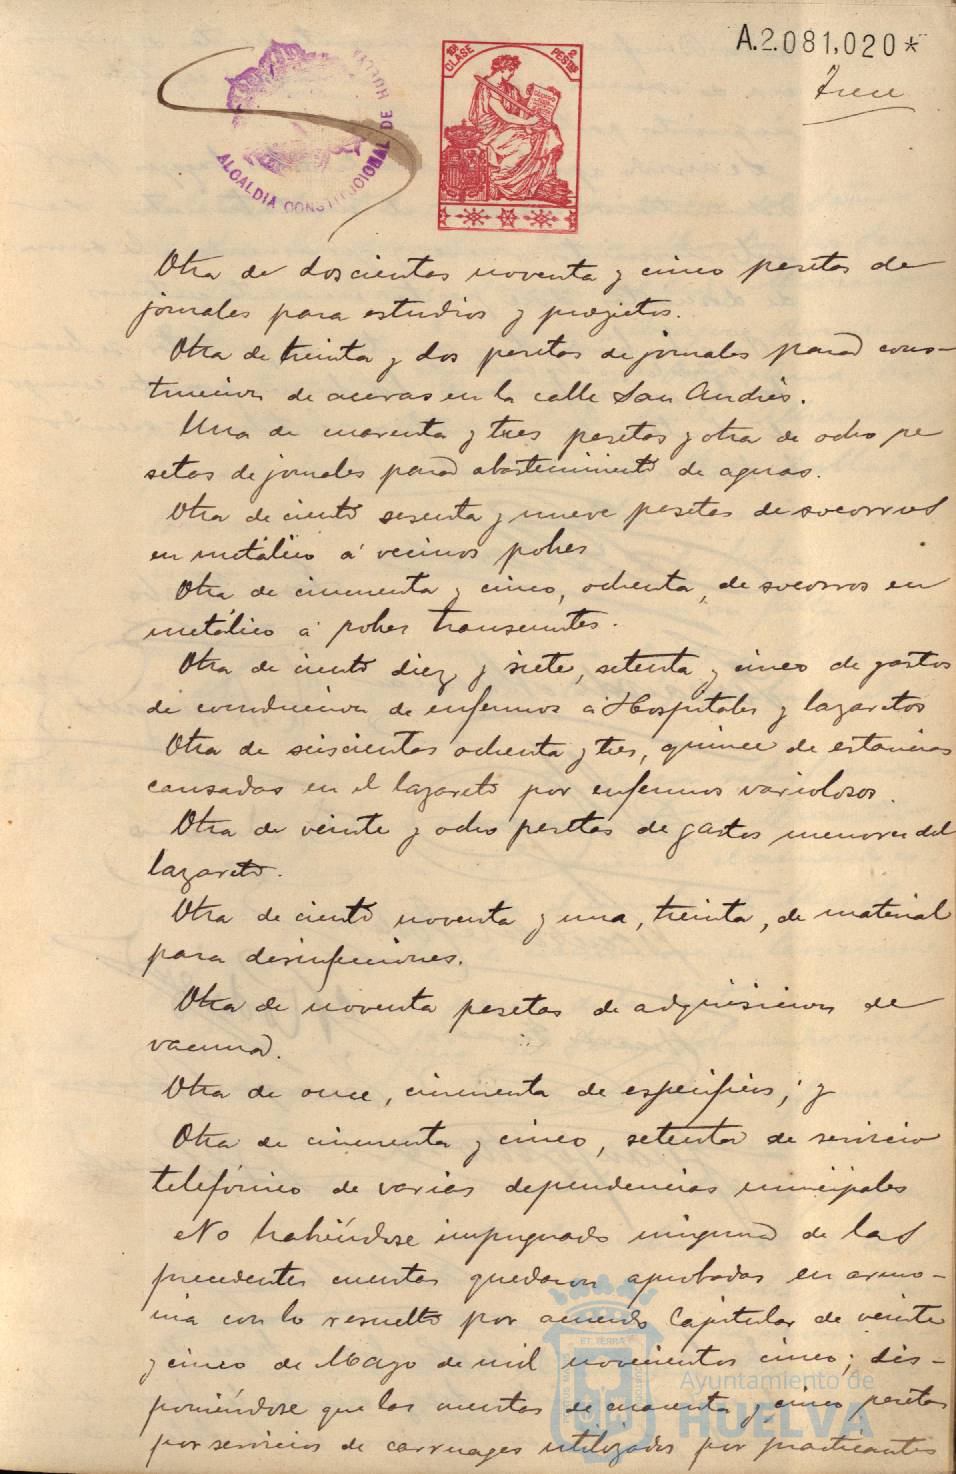 A.2.081,020*
Trece
10ª CLASE
2 PESTAS
ALCALDIA CONSTITUCIONAL DE HUELVA
Otra de doscientas noventa y cinco pesetas de
jornales para estudios y proyectos.
Otra de treinta y dos pesetas de jornales para cons-
trucion de aceras en la calle San Andrés.
Una de cuarenta y tres pesetas y otra de ocho pe
setas de jornales para abastecimiento de aguas.
Otra de ciento sesenta y nueve pesetas de socorros
en metálico á vecinos pobres
Otra de cincuenta y cinco, ochenta, de socorros en
metálico á pobres transeuntes.
Otra de ciento diez y siete, setenta y cinco de gastos
de conduccion de enfermos á Hospitales y lazaretos
Otra de seiscientas ochenta y tres, quince de estancias
causadas en el lazareto por enfermos variolosos.
Otra de veinte y ocho pesetas de gastos menores del
lazareto.
Otra de ciento noventa y una, treinta, de material
para desinfecciones.
Otra de noventa pesetas de adquisicion de
vacuna.
Otra de once, cincuenta de específicos; y
Otra de cincuenta y cinco, setenta de servicio
telefónico de varias dependencias municipales
No habiéndose impugnado ninguna de las
precedentes cuentas quedaron aprobadas en armo-
nia con lo resuelto por acuerdo Capitular de veinte
y cinco de Mayo de mil novecientos cinco; dis-
poniéndose que las cuentas de cuarenta y cinco pesetas
por servicios de carruages utilizados por practicantes
Ayuntamiento de
HUELVA